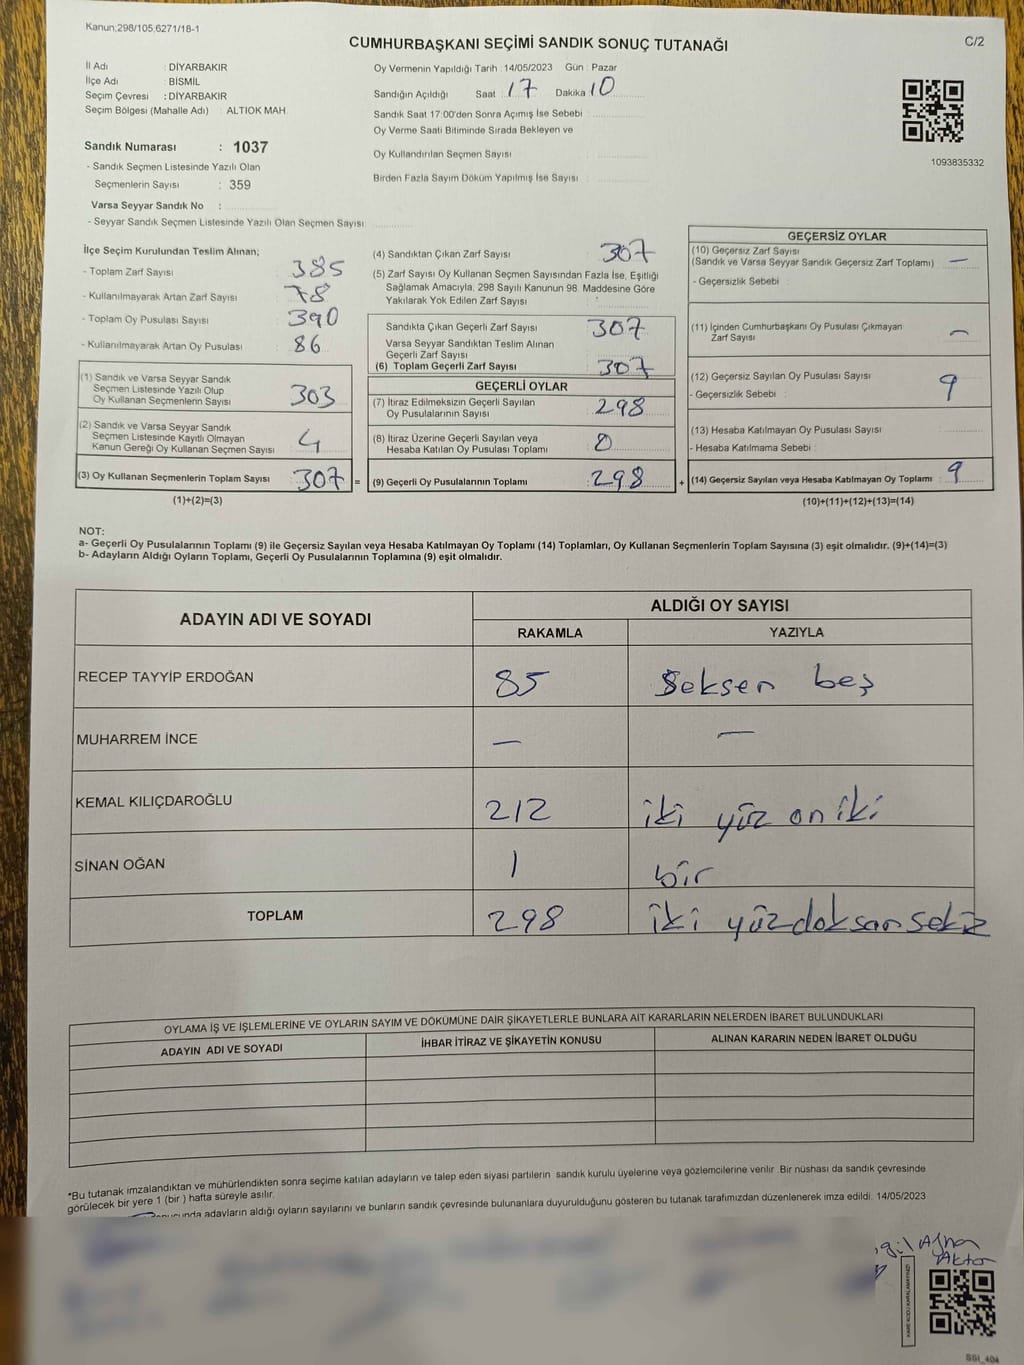 Kanun;298/105,6271/18-1
CUMHURBAŞKANI SEÇİMİ SANDIK SONUÇ TUTANAĞI
C/2
İl Adı : DİYARBAKIR
İlçe Adı : BİSMİL
Seçim Çevresi : DİYARBAKIR
Seçim Bölgesi (Mahalle Adı) : ALTIOK MAH.
Sandık Numarası : 1037
- Sandık Seçmen Listesinde Yazılı Olan
Seçmenlerin Sayısı : 359
Varsa Seyyar Sandık No :
- Seyyar Sandık Seçmen Listesinde Yazılı Olan Seçmen Sayısı :
Oy Vermenin Yapıldığı Tarih : 14/05/2023 Gün : Pazar
Sandığın Açıldığı Saat : 17 Dakika : 10
Sandık Saat 17:00'den Sonra Açımış İse Sebebi :
Oy Verme Saati Bitiminde Sırada Bekleyen ve
Oy Kullandırılan Seçmen Sayısı :
Birden Fazla Sayım Döküm Yapılmış İse Sayısı :
1093835332
İlçe Seçim Kurulundan Teslim Alınan;
- Toplam Zarf Sayısı : 385
- Kullanılmayarak Artan Zarf Sayısı : 78
- Toplam Oy Pusulası Sayısı : 390
- Kullanılmayarak Artan Oy Pusulası : 86
(1) Sandık ve Varsa Seyyar Sandık
Seçmen Listesinde Yazılı Olup
Oy Kullanan Seçmenlerin Sayısı : 303
(2) Sandık ve Varsa Seyyar Sandık
Seçmen Listesinde Kayıtlı Olmayan
Kanun Gereği Oy Kullanan Seçmen Sayısı : 4
(3) Oy Kullanan Seçmenlerin Toplam Sayısı : 307 =
(1)+(2)=(3)
(4) Sandıktan Çıkan Zarf Sayısı : 307
(5) Zarf Sayısı Oy Kullanan Seçmen Sayısından Fazla İse, Eşitliği
Sağlamak Amacıyla, 298 Sayılı Kanunun 98. Maddesine Göre
Yakılarak Yok Edilen Zarf Sayısı :
Sandıkta Çıkan Geçerli Zarf Sayısı : 307
Varsa Seyyar Sandıktan Teslim Alınan
Geçerli Zarf Sayısı :
(6) Toplam Geçerli Zarf Sayısı : 307
GEÇERLİ OYLAR
(7) İtiraz Edilmeksizin Geçerli Sayılan
Oy Pusulalarının Sayısı : 298
(8) İtiraz Üzerine Geçerli Sayılan veya
Hesaba Katılan Oy Pusulası Toplamı : 0
(9) Geçerli Oy Pusulalarının Toplamı : 298 +
GEÇERSİZ OYLAR
(10) Geçersiz Zarf Sayısı
(Sandık ve Varsa Seyyar Sandık Geçersiz Zarf Toplamı) : —
- Geçersizlik Sebebi :
(11) İçinden Cumhurbaşkanı Oy Pusulası Çıkmayan
Zarf Sayısı : —
(12) Geçersiz Sayılan Oy Pusulası Sayısı : 9
- Geçersizlik Sebebi :
(13) Hesaba Katılmayan Oy Pusulası Sayısı :
- Hesaba Katılmama Sebebi :
(14) Geçersiz Sayılan veya Hesaba Katılmayan Oy Toplamı : 9
(10)+(11)+(12)+(13)=(14)
NOT:
a- Geçerli Oy Pusulalarının Toplamı (9) ile Geçersiz Sayılan veya Hesaba Katılmayan Oy Toplamı (14) Toplamları, Oy Kullanan Seçmenlerin Toplam Sayısına (3) eşit olmalıdır. (9)+(14)=(3)
b- Adayların Aldığı Oyların Toplamı, Geçerli Oy Pusulalarının Toplamına (9) eşit olmalıdır.
ADAYIN ADI VE SOYADI ALDIĞI OY SAYISI
RAKAMLA YAZIYLA
RECEP TAYYİP ERDOĞAN 85 Seksen beş
MUHARREM İNCE — —
KEMAL KILIÇDAROĞLU 212 iki yüz on iki
SİNAN OĞAN 1 bir
TOPLAM 298 iki yüz doksan sekiz
OYLAMA İŞ VE İŞLEMLERİNE VE OYLARIN SAYIM VE DÖKÜMÜNE DAİR ŞİKAYETLERLE BUNLARA AİT KARARLARIN NELERDEN İBARET BULUNDUKLARI
ADAYIN ADI VE SOYADI İHBAR İTİRAZ VE ŞİKAYETİN KONUSU ALINAN KARARIN NEDEN İBARET OLDUĞU
*Bu tutanak imzalandıktan ve mühürlendikten sonra seçime katılan adayların ve talep eden siyasi partilerin sandık kurulu üyelerine veya gözlemcilerine verilir. Bir nüshası da sandık çevresinde
görülecek bir yere 1 (bir ) hafta süreyle asılır.
adayların aldığı oyların sayılarını ve bunların sandık çevresinde bulunanlara duyurulduğunu gösteren bu tutanak tarafımızdan düzenlenerek imza edildi. 14/05/2023
KARE KODU KARALAMAYINIZ!